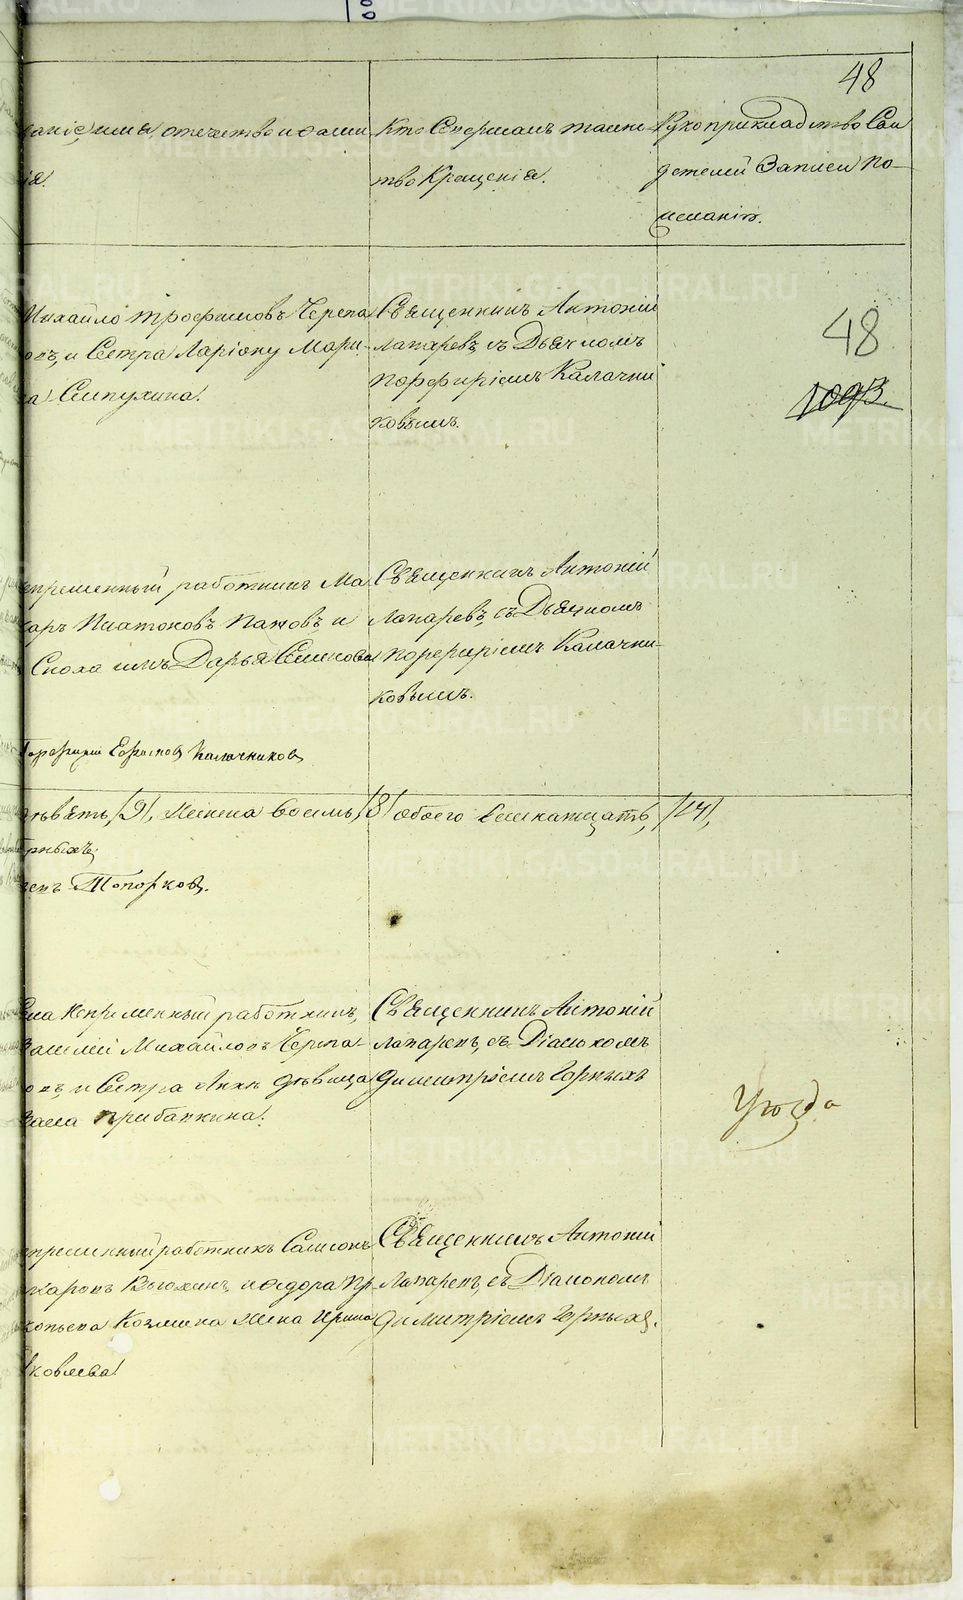 48
званіе, имя, отечество и фами
лія.
Кто Совершалъ таинс
тво Крещенія.
Рукоприкладство Сви
детелей Записи по
желанію.
Михайло Трофимовъ Черепа
новъ, и Сестра Ларіону Мари
на Сипухина.
Священникъ Антоній
Лапаревъ, съ Дьячкомъ
Порфиріемъ Калачни
ковымъ.
48
1093.
непременный работникъ Ма
каръ Платоновъ Пановъ, и
Дарья Семенова
Священникъ Антоній
Лапаревъ, съ Дьячкомъ
Порфиріемъ Калачни-
ковымъ.
Порфирій Калачниковъ
девять /9/, Женска восемь /8/ обоего Семнатцать, /17/,
Черныхъ;
Топорковъ.
непременный работникъ,
Василій Михайловъ Черепа-
новъ, и Сестра Анна девица
Прибаткина.
Священникъ Антоній
Лапаревъ, съ Діакономъ
Димитріемъ Черныхъ
непременный работникъ Самсонъ
Макаровъ Вьюхинъ, и Федора Пр
копьева Козмина жена Ирина
Яковлева.
Священникъ Антоній
Лапаревъ, съ Діакономъ
Димитріемъ Черныхъ.
METRIKI.GASO-URAL.RU